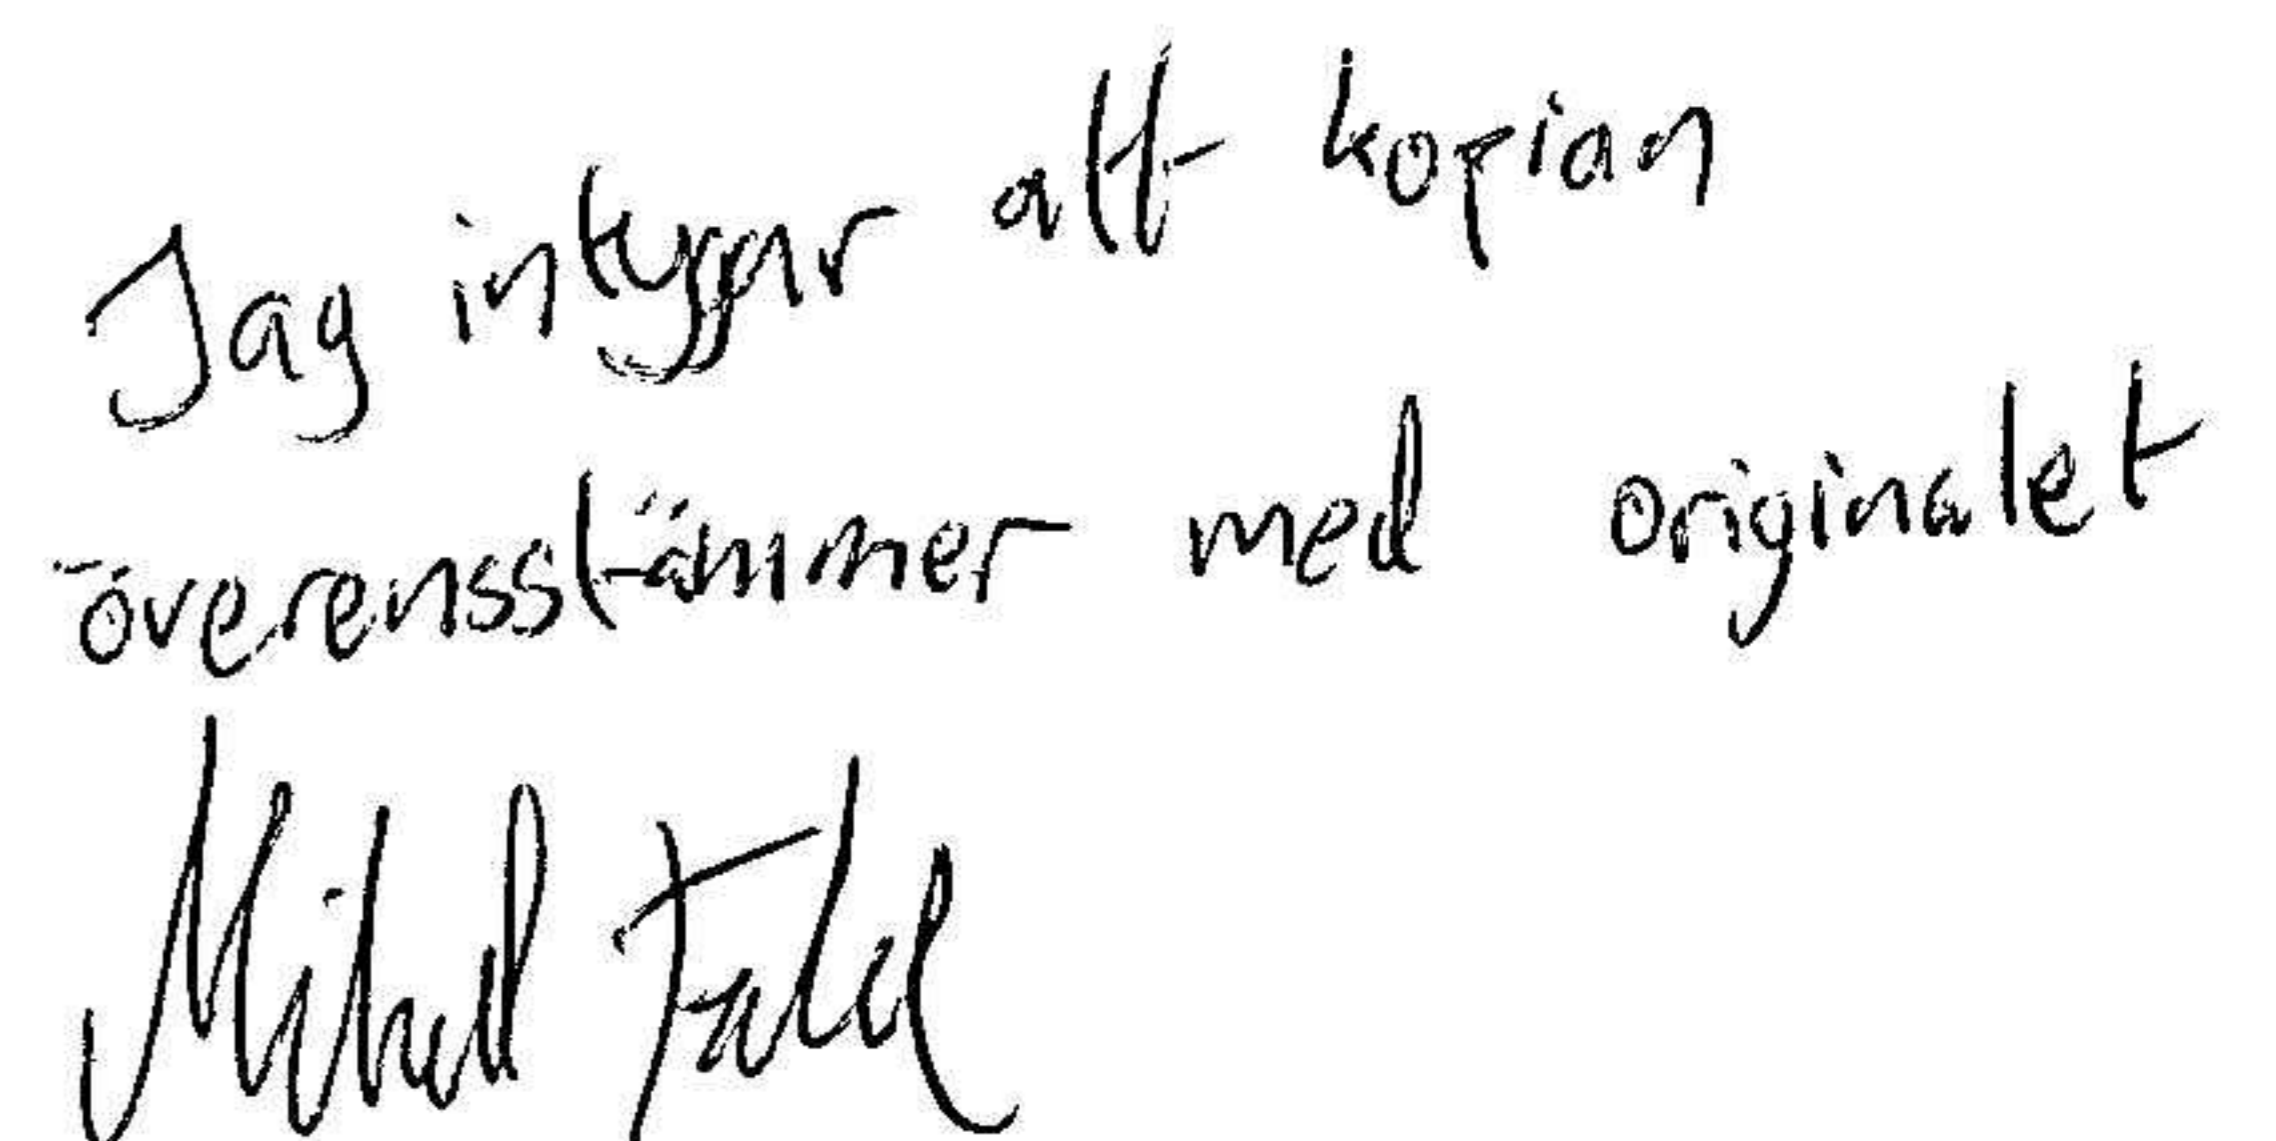 Jag intygar att kopian
överensstämmer med originalet